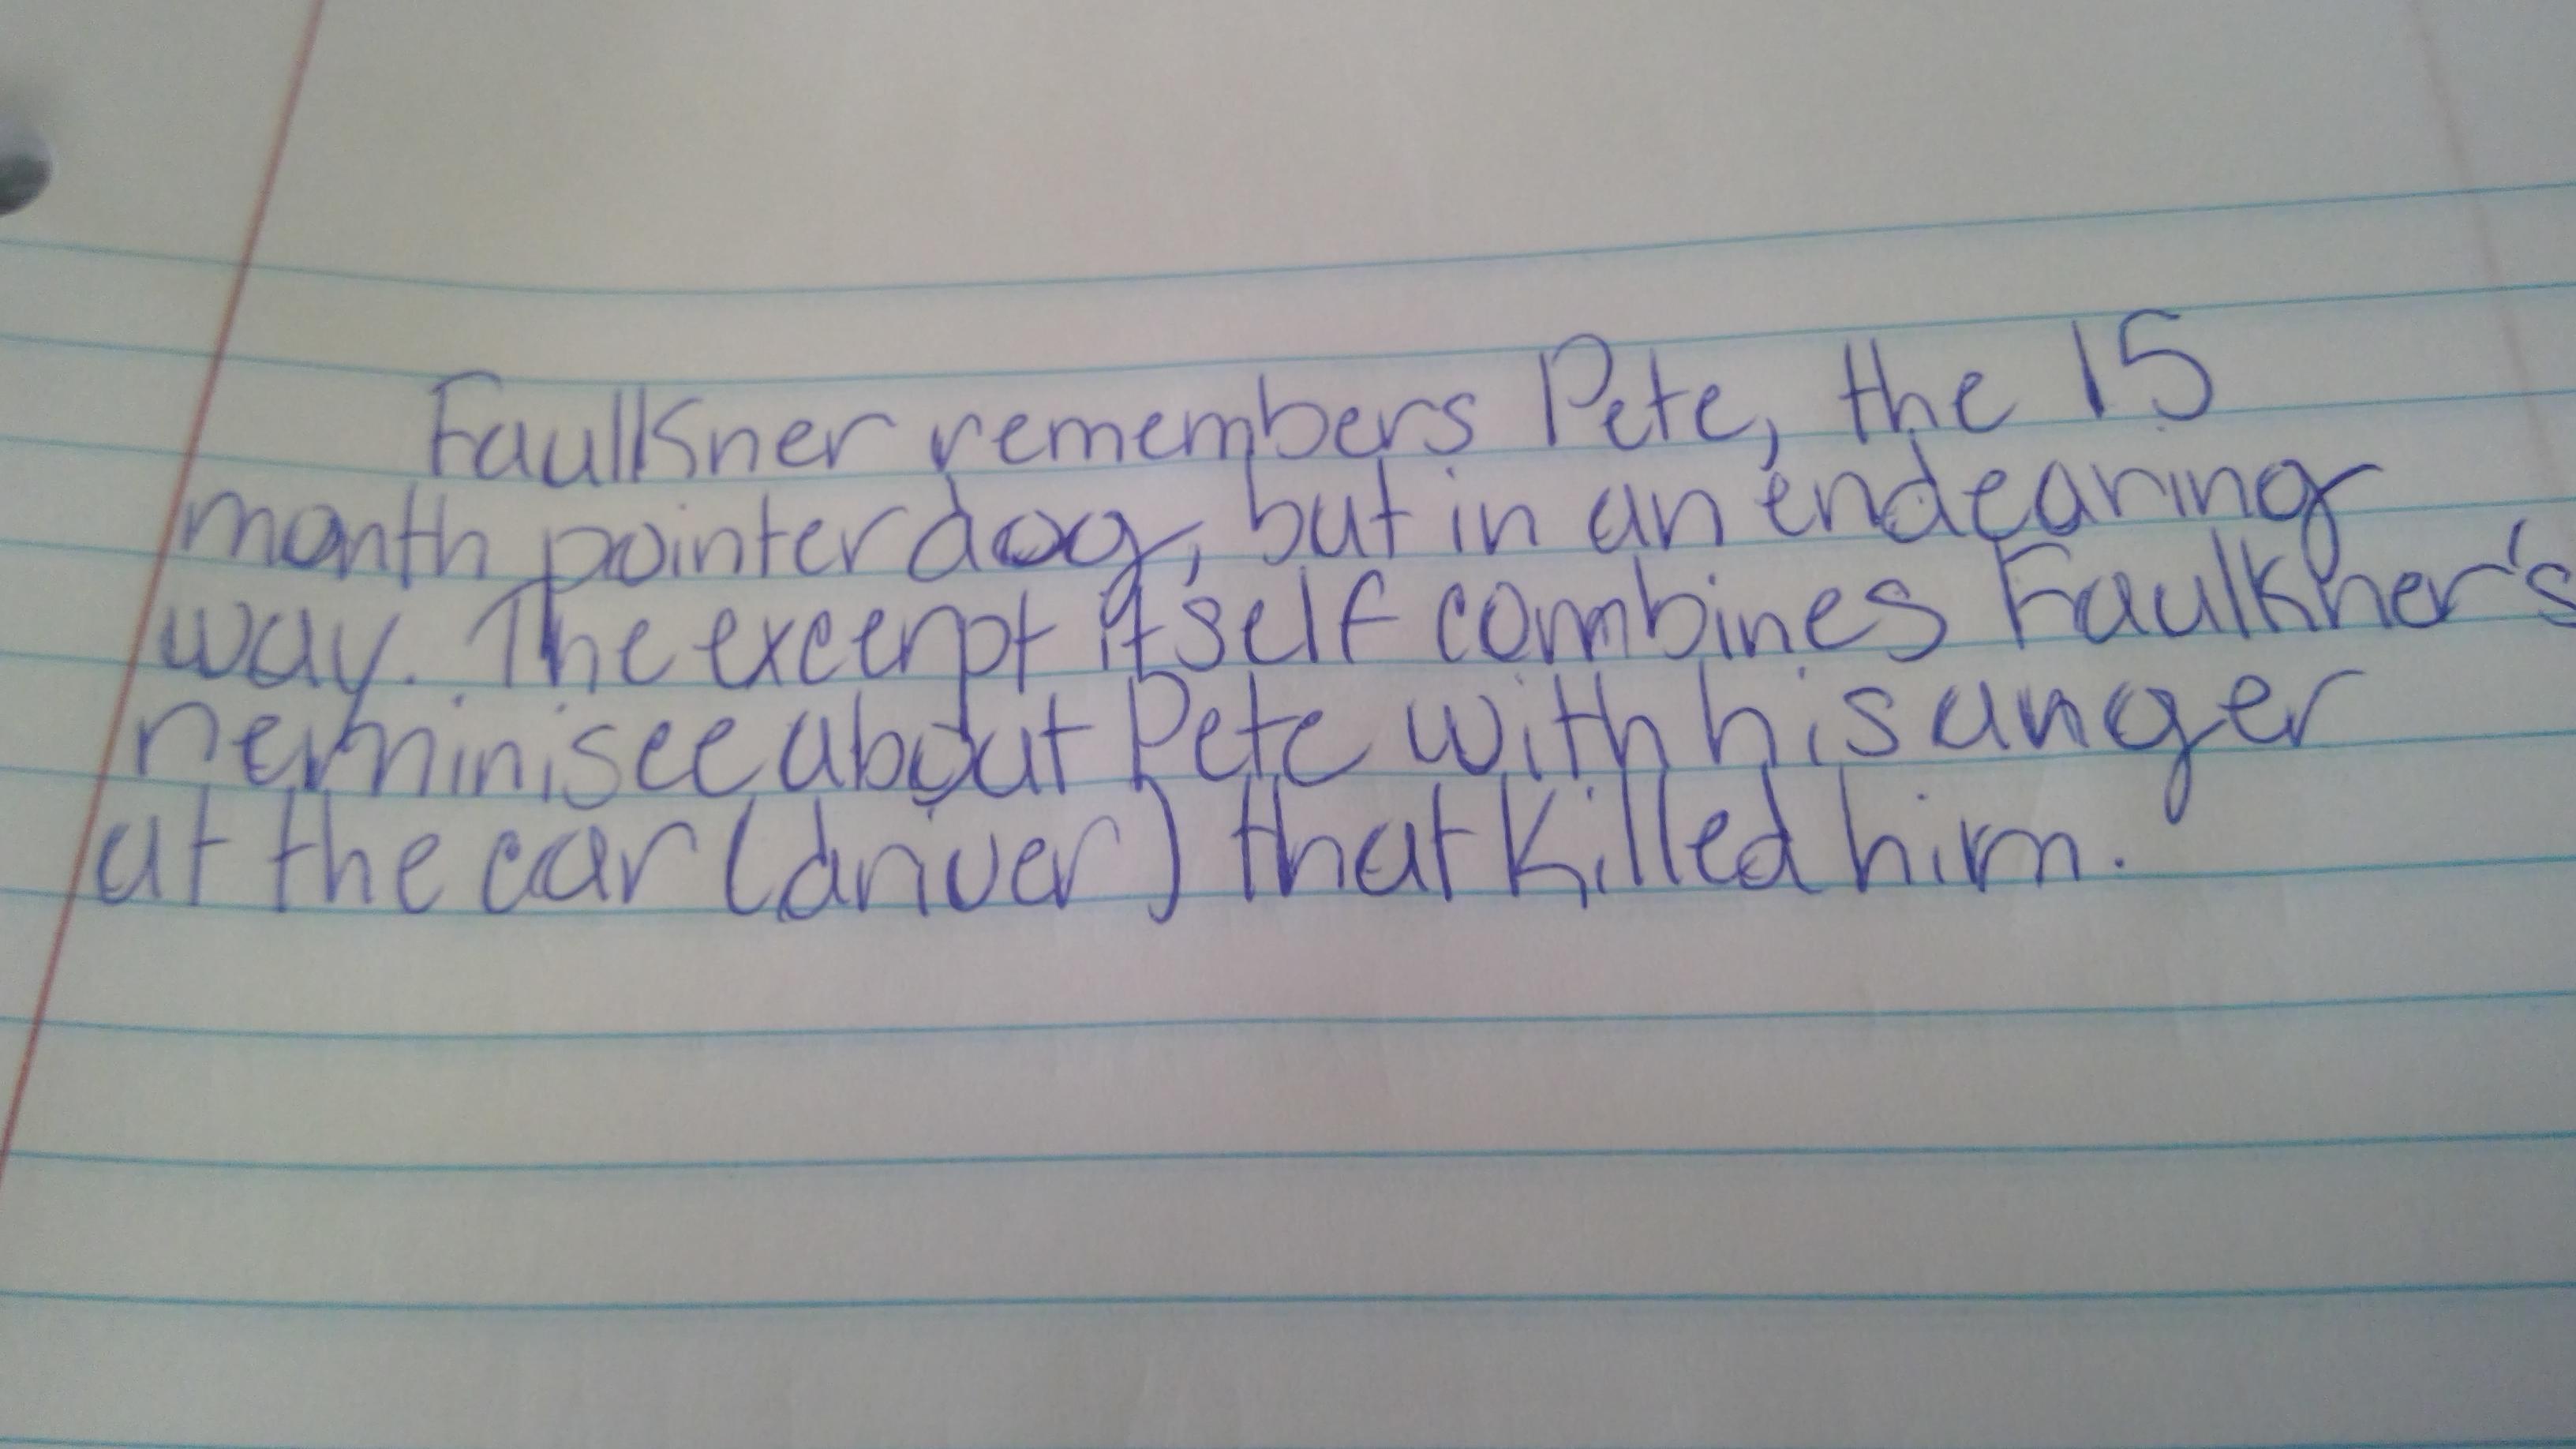 Faulkner remembers Pete, the 15
month pointer dog, but in an endearing
way. The excerpt itself combines Faulkner's
reminisce about Pete with his anger
at the car (driver) that killed him.